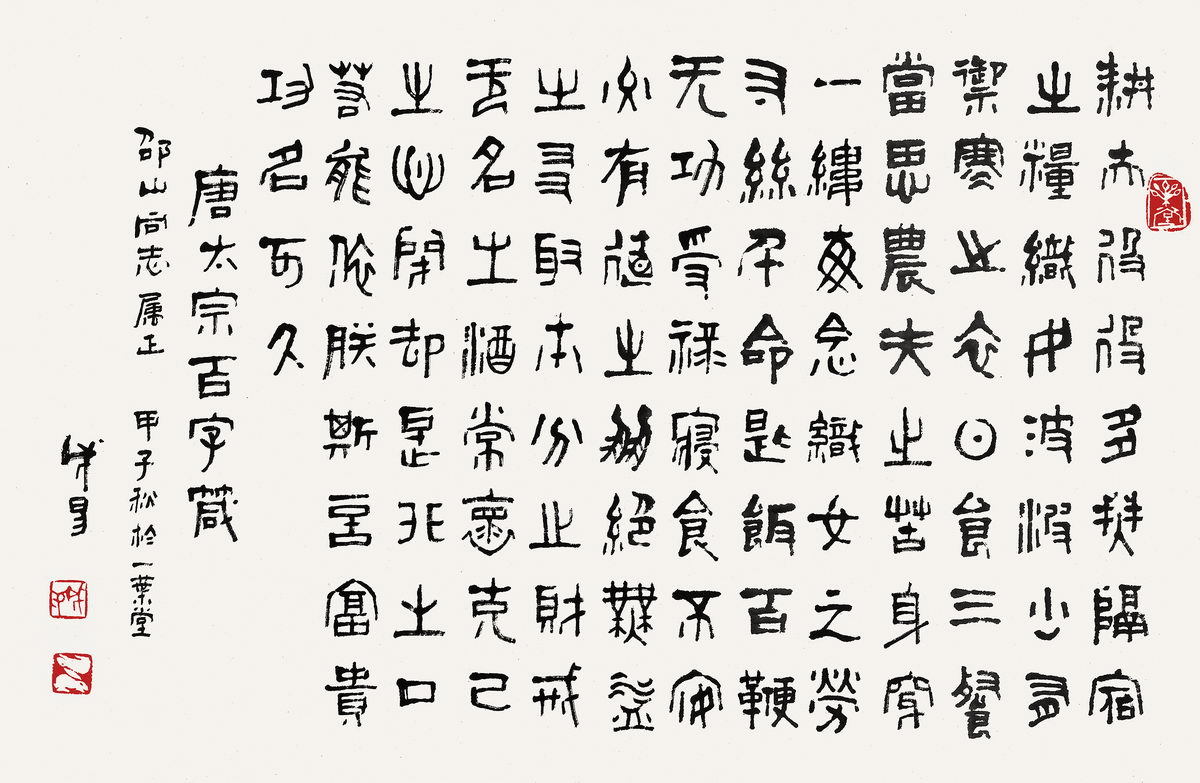 耕夫役役多無隔宿
之糧織女波波少有
禦寒之衣日食三餐
當思農夫之苦身穿
一縷每念織女之勞
寸絲千命匙飯百鞭
无功受祿寢食不安
交有德之朋絕無益
之友取本分之財戒
无名之酒常懷克己
之心閉却是非之口
若能依朕斯言富貴
功名可久
唐太宗百字箴
邵山同志属正 甲子秋於一葉堂